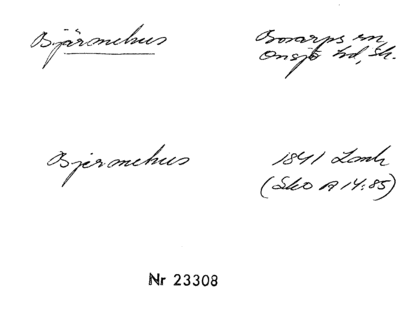 Bjärnehus
Bosarps sn,
Onsjö hd, Sk.
Bjernehus
1841 Lantm
(Sko A 14:85)
Nr 23308